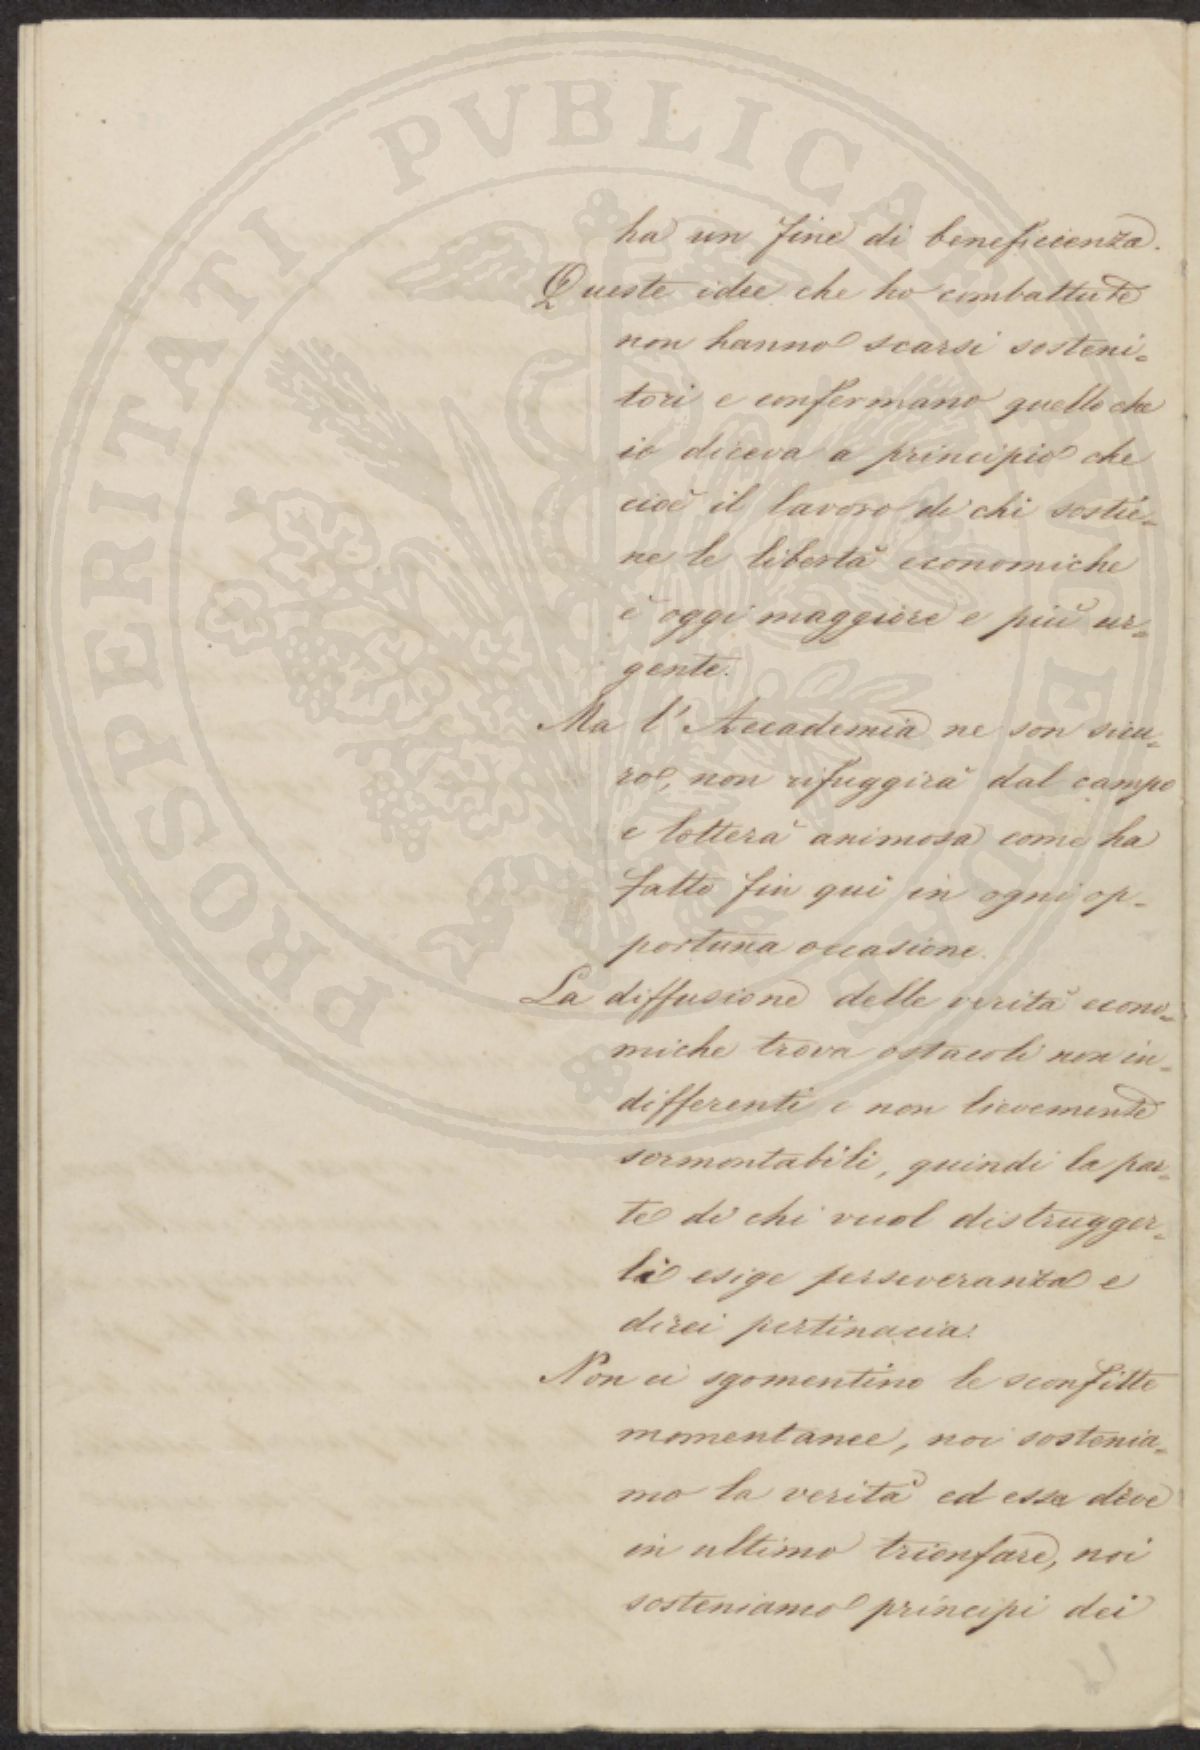 PROSPERITATI PVBLICAE AVGENDAE
ha un fine di beneficienza.
Queste idee che ho combattute
non hanno scarsi sosteni=
tori e confermano quello che
io diceva a principio che
cioè il lavoro di chi sostie=
ne le libertà economiche
è oggi maggiore e più ur=
gente.
Ma l'Accademia ne son sicu=
ro, non rifuggirà dal campo
e lotterà animosa come ha
fatto fin qui in ogni op=
portuna occasione.
La diffusione delle verità econo=
miche trova ostacoli non in=
differenti e non lievemente
sormontabili, quindi la par=
te di chi vuol distrugger=
li esige perseveranza e
direi pertinacia.
Non ci sgomentino le sconfitte
momentanee, noi sostenia=
mo la verità ed essa deve
in ultimo trionfare, noi
sosteniamo principi dei